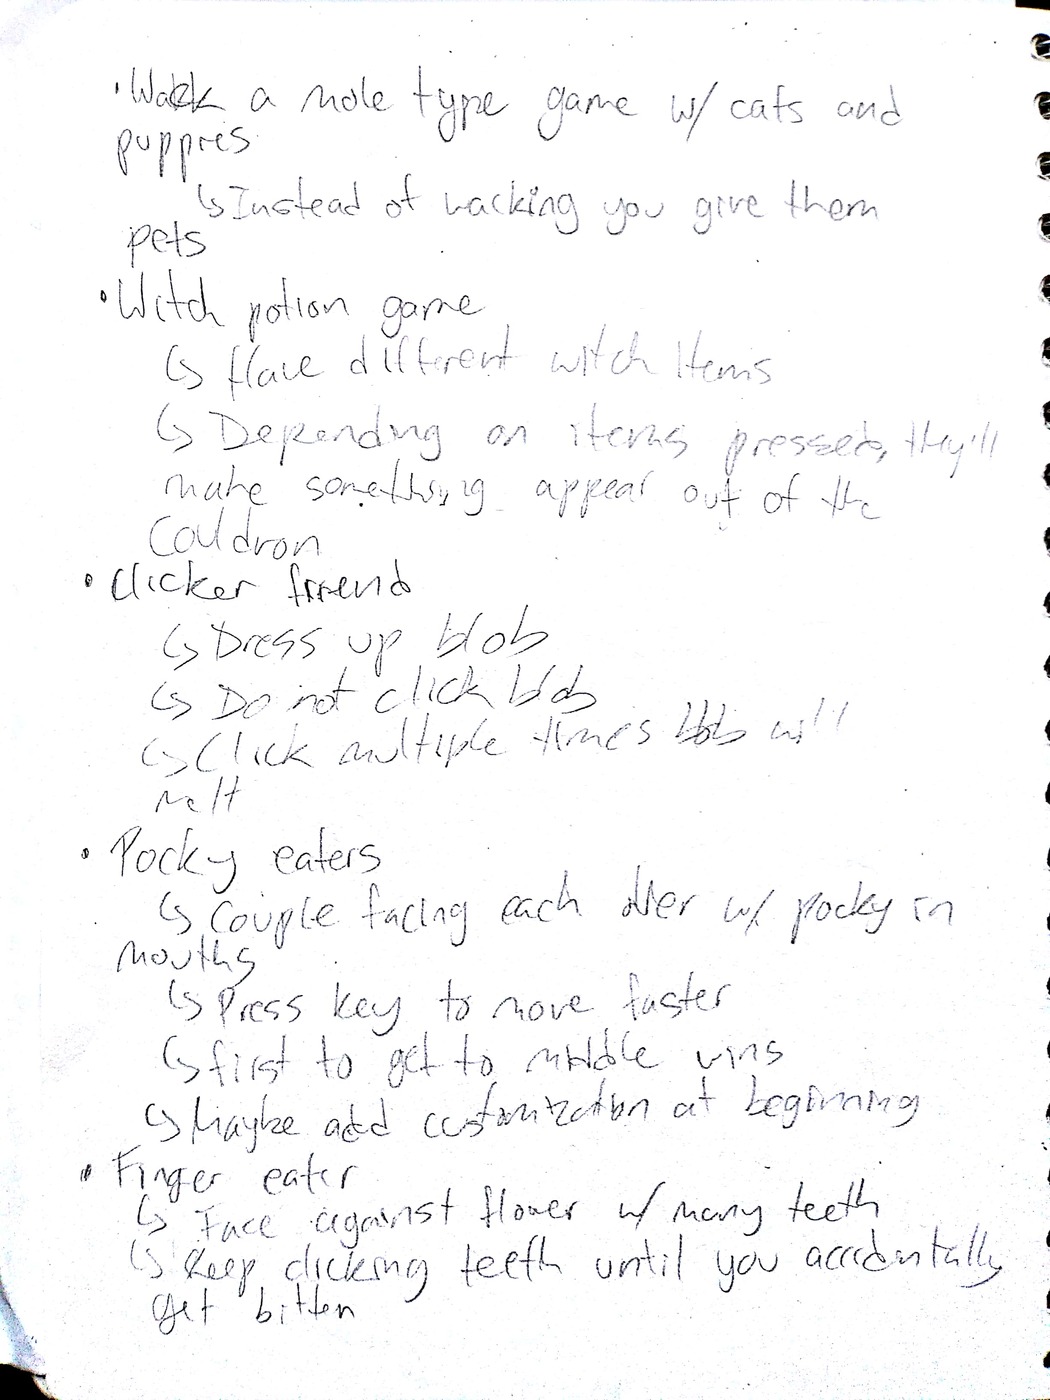 • Wack a mole type game w/ cats and
puppies
↳ Instead of wacking you give them
pets
• Witch potion game
↳ Have different witch items
↳ Depending on items pressed, they'll
make something appear out of the
Couldron
• Clicker friend
↳ Dress up blob
↳ Do not click blob
↳ Click multiple times blob will
melt
• Pocky eaters
↳ Couple facing each other w/ pocky in
mouths
↳ Press key to move faster
↳ first to get to middle wins
↳ Maybe add customization at beginning
• Finger eater
↳ Face against flower w/ many teeth
↳ Keep clicking teeth until you accidentally
get bitten